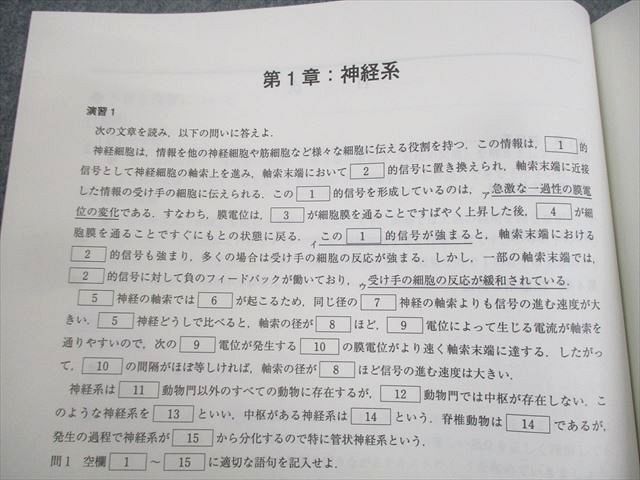 第1章：神経系
演習1
次の文章を読み，以下の問いに答えよ．
神経細胞は，情報を他の神経細胞や筋細胞など様々な細胞に伝える役割を持つ．この情報は，1的
信号として神経細胞の軸索上を進み，軸索末端において2的信号に置き換えられ，軸索末端に近接
した情報の受け手の細胞に伝えられる．この1的信号を形成しているのは，ア急激な一過性の膜電
位の変化である．すなわち，膜電位は，3が細胞膜を通ることですばやく上昇した後，4が細
胞膜を通ることですぐにもとの状態に戻る．イこの1的信号が強まると，軸索末端における
2的信号も強まり，多くの場合は受け手の細胞の反応が強まる．しかし，一部の軸索末端では，
2的信号に対して負のフィードバックが働いており，ウ受け手の細胞の反応が緩和されている．
5神経の軸索では6が起こるため，同じ径の7神経の軸索よりも信号の進む速度が大
きい．5神経どうしで比べると，軸索の径が8ほど，9電位によって生じる電流が軸索を
通りやすいので，次の9電位が発生する10の膜電位がより速く軸索末端に達する．したがっ
て，10の間隔がほぼ等しければ，軸索の径が8ほど信号の進む速度は大きい．
神経系は11動物門以外のすべての動物に存在するが，12動物門では中枢が存在しない．こ
のような神経系を13といい，中枢がある神経系は14という．脊椎動物は14であるが，
発生の過程で神経系が15から分化するので特に管状神経系という．
問1 空欄1～15に適切な語句を記入せよ．